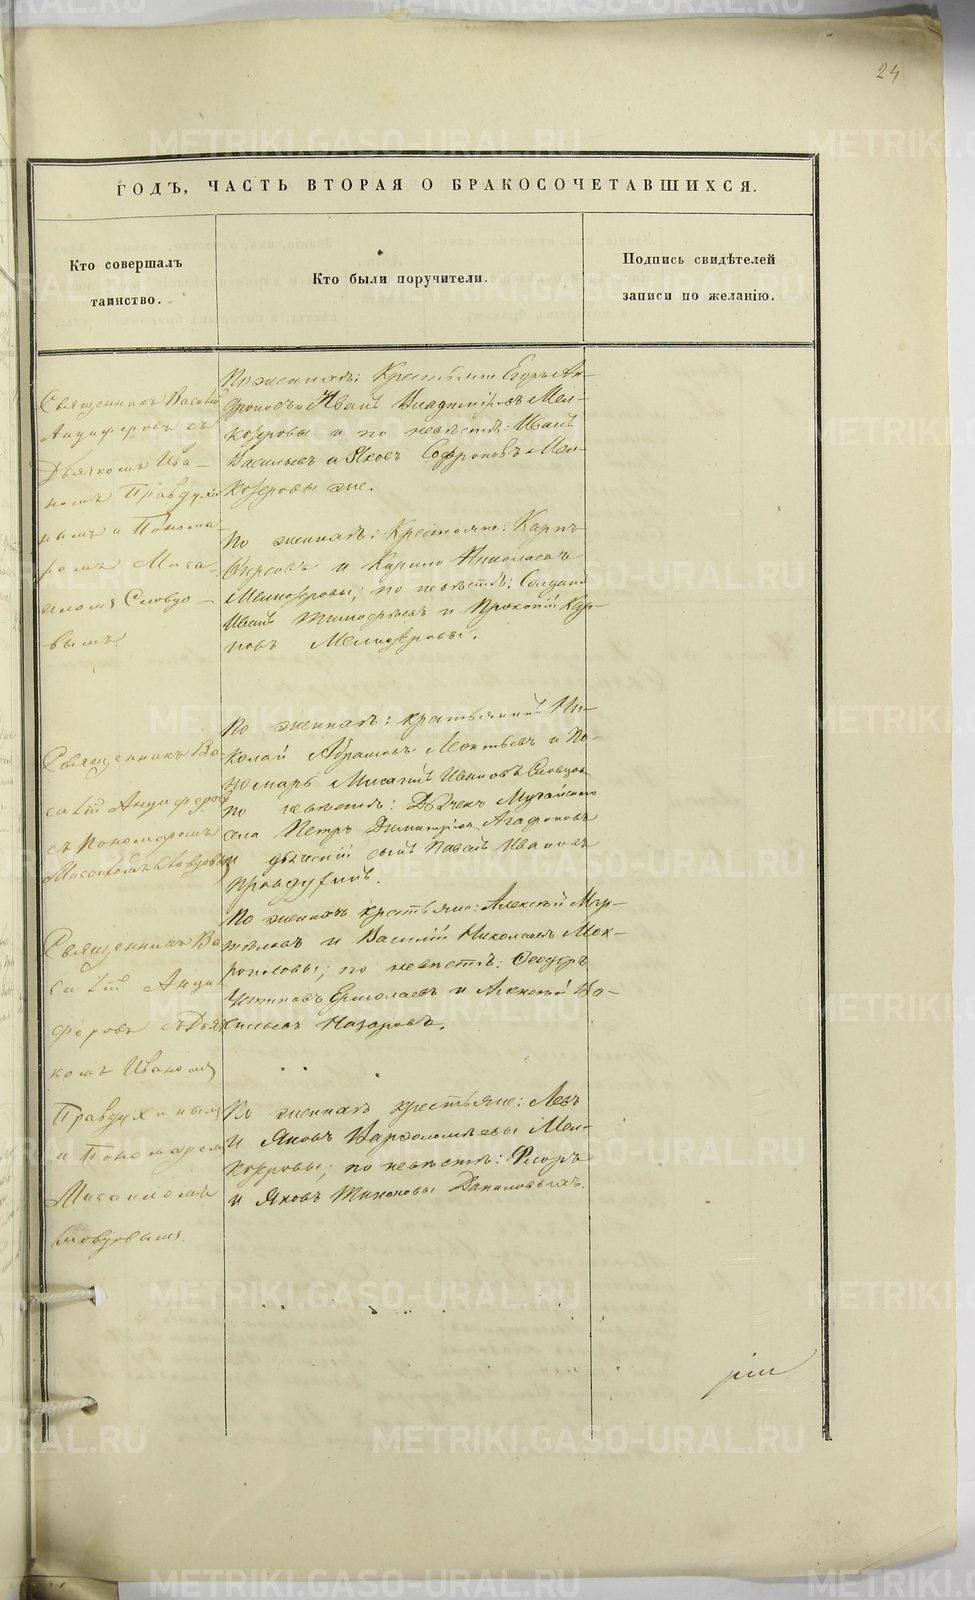 24
ГОДЪ, ЧАСТЬ ВТОРАЯ О БРАКОСОЧЕТАВШИХСЯ.
Кто совершалъ
таинство.
Кто были поручители.
Подпись свидѣтелей
записи по желанію.
Священникъ Василій
Анциферовъ съ
Дьячкомъ Ива-
номъ Правдухи
нымъ и Понома
ремъ Миса-
иломъ Словцо-
вымъ.
По женихѣ: Крестьяне Егоръ Ан-
дроновъ и Иванъ Мел-
козеровы и по невѣстѣ: Иванъ
Васильевъ и Яковъ Софроновъ Мел-
козеровы же.
По женихѣ: Крестьяне: Карпъ
и Кирило Николаевъ
Мелкозеровы; по невѣстѣ: Солдатъ
Иванъ Тимофѣевъ и Прокопій Кар-
повъ Мелкозеровы.
Священникъ Ва-
силій Анциферовъ
съ пономаремъ
Мисаиломъ Словцовым
По женихѣ: крестьянинъ Ни-
колай Абрамовъ Леонтьевъ и По-
номарь Мисаилъ Ивановъ Словцовъ
по невѣстѣ: Дьячекъ
села Петръ Димитріевъ Агафоновъ
и сынъ Павелъ Ивановъ
Правдухинъ.
Священникъ Ва
силій Анци
феровъ съ Дья
комъ Иваномъ
Правдухинымъ
и Пономаремъ
Мисаиломъ
Словцовымъ.
По женихѣ крестьяне: Алексѣй Мар-
и Василій Николаевъ Мок-
роносовы; по невѣстѣ: Ѳеодоръ
Ермолаевъ и Алексѣй Ва-
сильевъ Назаровъ.
По женихѣ крестьяне: Левъ
и Яковъ Варѳоломѣевы Мел-
козеровы; по невѣстѣ: Флоръ
и Яковъ Тихоновы
рій
METRIKI.GASO-URAL.RU